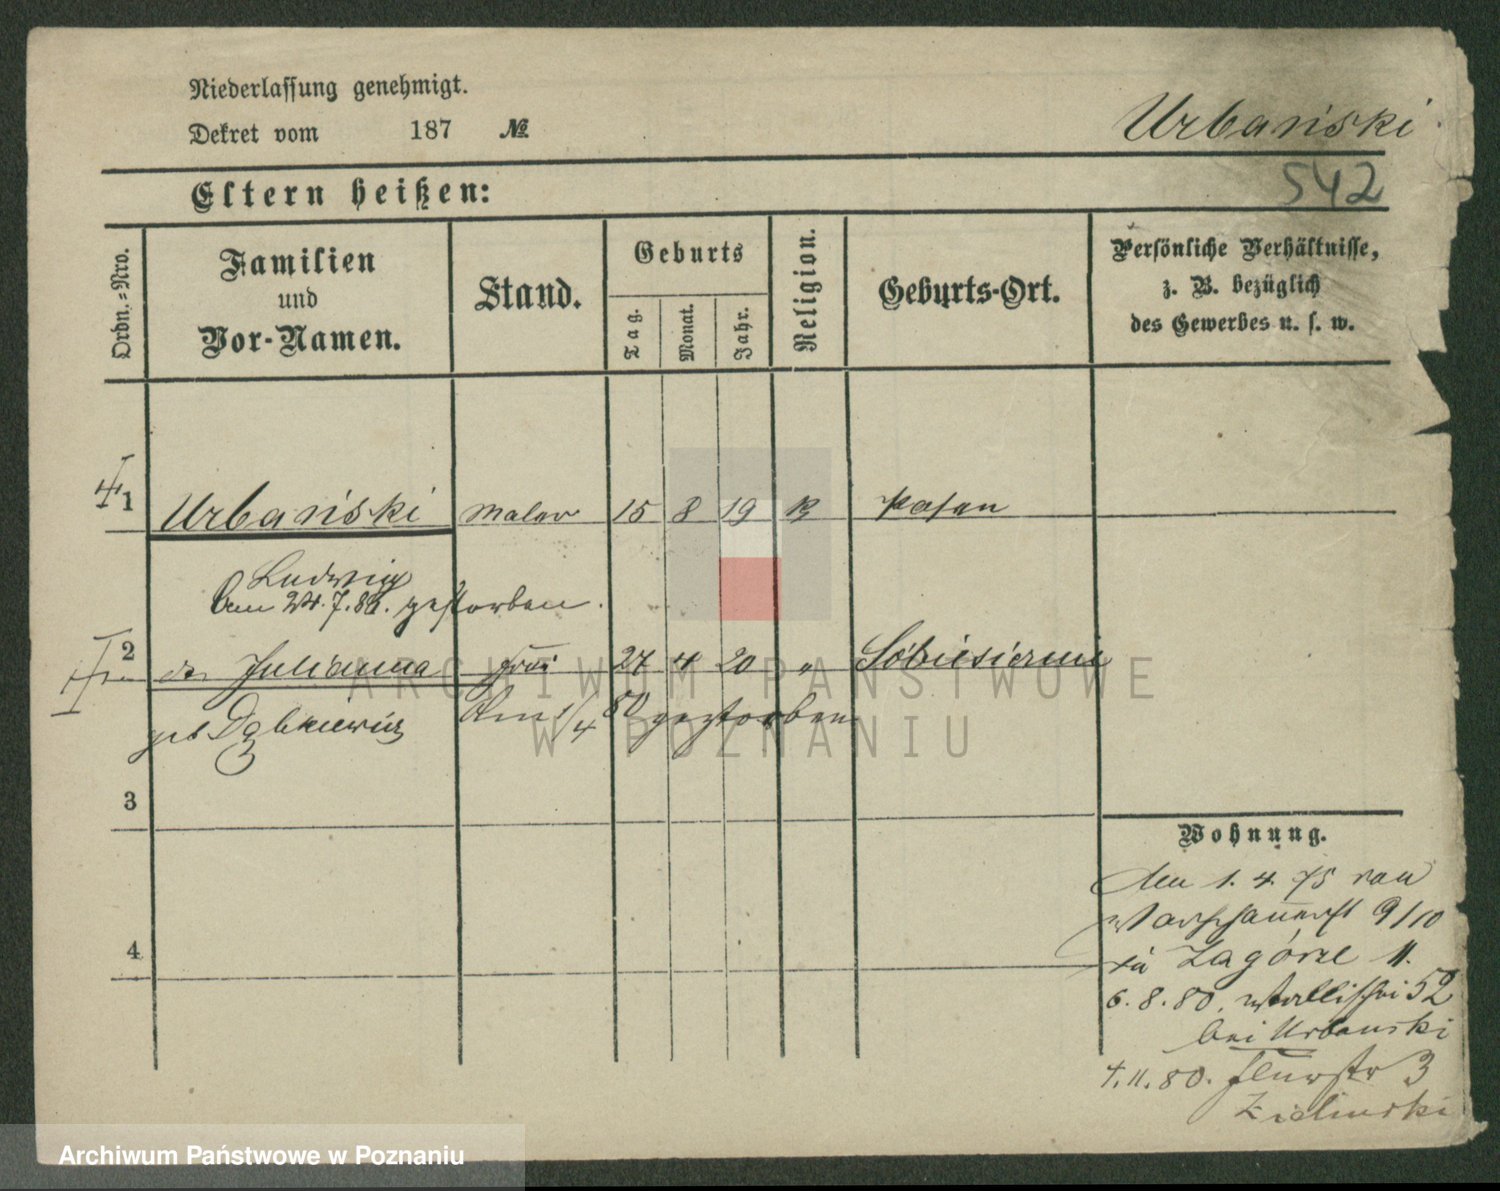 Niederlassung genehmigt.
Dekret vom 187 №
Urbański
542
Eltern heißen:
Ordn.=Nro.
Familien
und
Vor-Namen.
Stand.
Geburts
Tag.
Monat.
Jahr.
Religion.
Geburts-Ort.
Persönliche Verhältnisse,
z. B. bezüglich
des Gewerbes u. s. w.
1 Urbański Maler 15 8 19 K Posen
Ludwig
Am 24.7.86. gestorben.
2 Julianna Frau 27 4 20 "
geb Am 1/4 80 gestorben
3
4
Wohnung.
Den 1. 4. 75 von
Warschauerst 9/10
Zagórze 11.
6. 8. 80. Wallischei 52
bei Urbanski
4. 11. 80. 3
Zielinski
ARCHIWUM PAŃSTWOWE
W POZNANIU
Archiwum Państwowe w Poznaniu